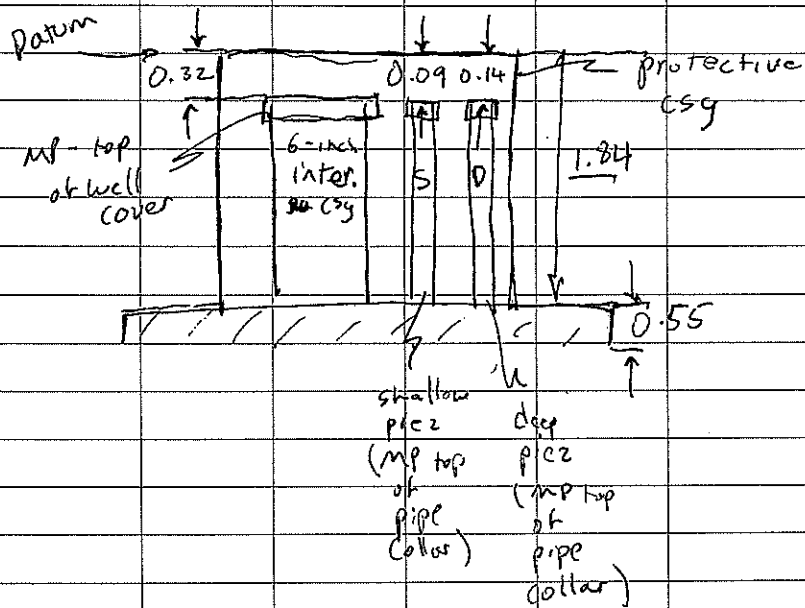 Datum
0.32
0.09 0.14
protective
csg
MP - top
of well
cover
6-inch
inter.
csg
S
D
1.84
0.55
shallow
piez
(MP top
of
pipe
collar)
deep
piez
(MP top
of
pipe
collar)